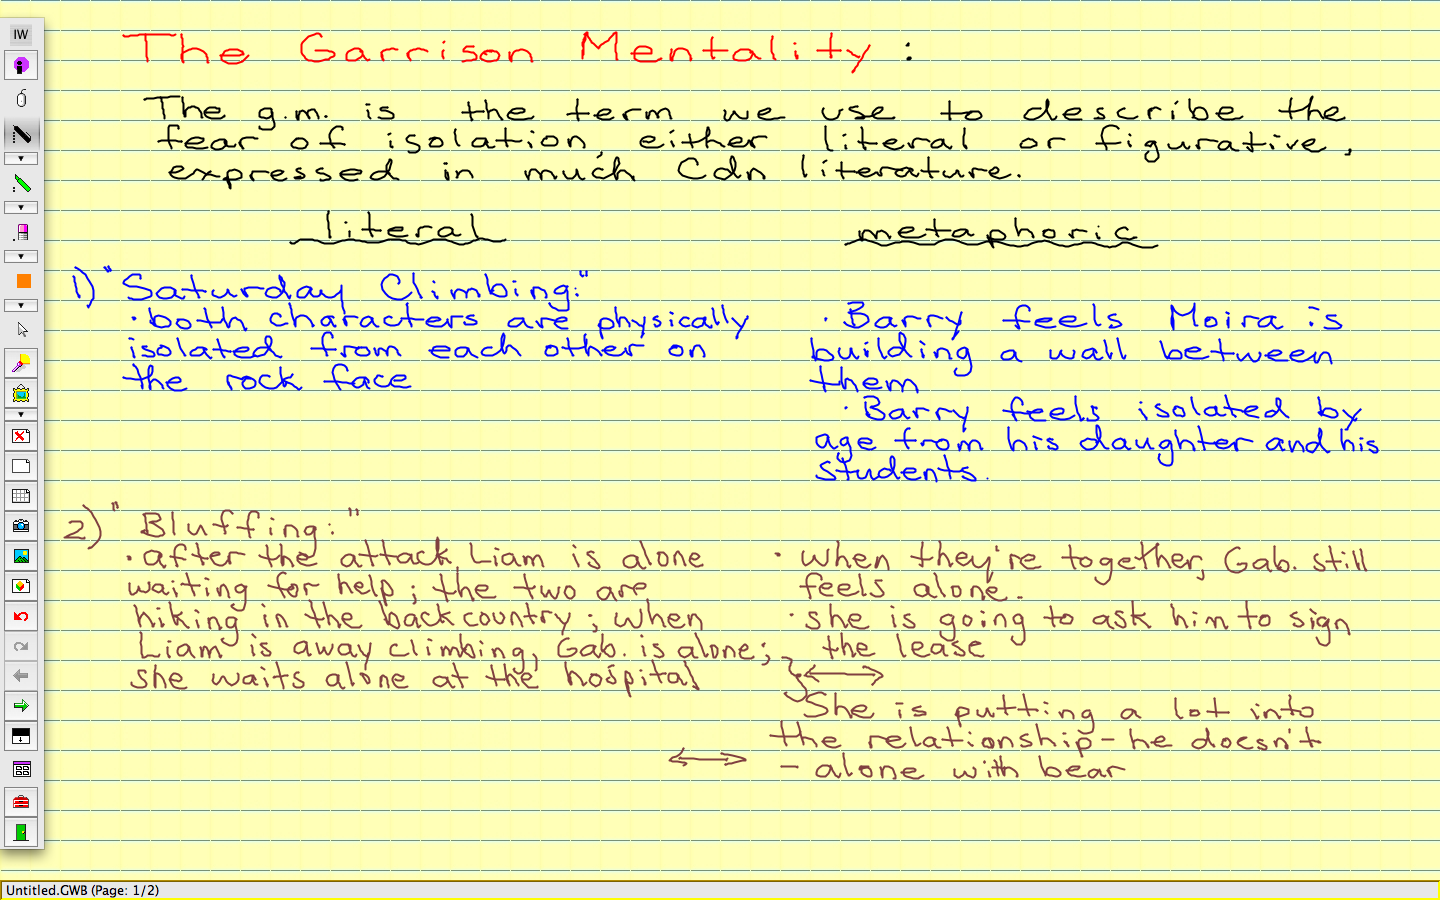 IW
The Garrison Mentality :
The g.m. is the term we use to describe the
fear of isolation, either literal or figurative,
expressed in much Cdn literature.
literal
metaphoric
1) "Saturday Climbing:"
· both characters are physically
isolated from each other on
the rock face
· Barry feels Moira is
building a wall between
them
· Barry feels isolated by
age from his daughter and his
students.
2) "Bluffing:"
· after the attack, Liam is alone
waiting for help; the two are
hiking in the back country; when
Liam is away climbing, Gab. is alone;
she waits alone at the hospital
· when they're together, Gab. still
feels alone.
· she is going to ask him to sign
the lease
She is putting a lot into
the relationship - he doesn't
- alone with bear
Untitled.GWB (Page: 1/2)